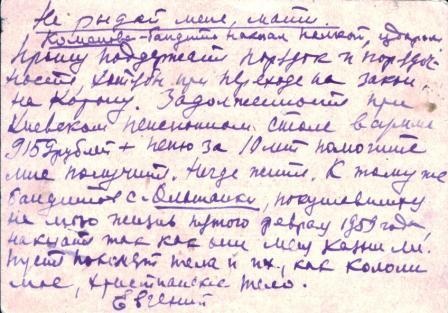 Не рыдай мене, мати.
Команова - бандита наказ палкой, ударом
Прошу поддержат порядок и порядоч-
ност, контрол при переходе на закон
на Корону. Задолженност при
Киевском пенсионном столе в сумме
9159 рублей + пеню за 10 лет помогите
мне получит. Негде жити. К тому же
бандитов с. Ольшанки, покушевшихся
на мою жизнь пятого феврал 1959 года,
наказат так как они меня казнили.
Пуст пакажут тела и их, как кололи
мое, християнское тело.
Евгений